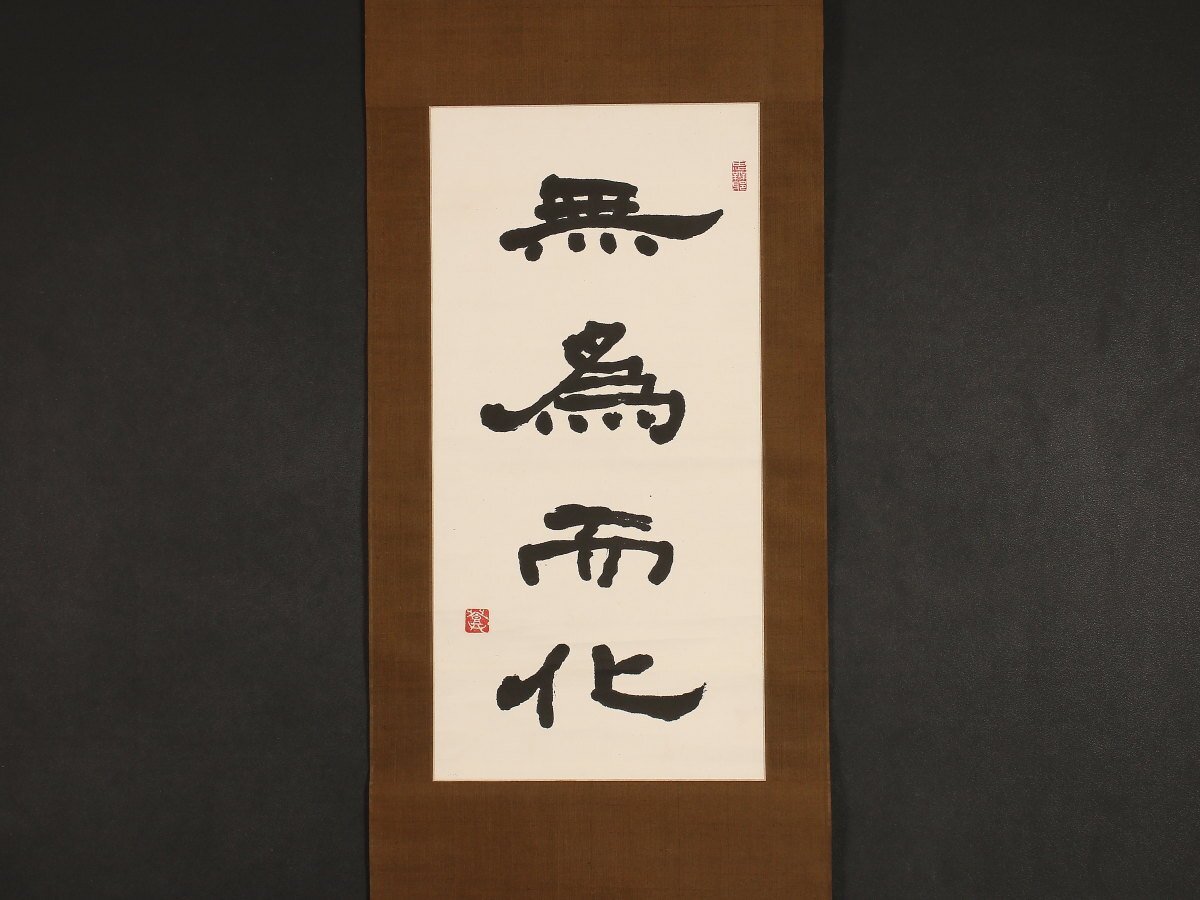 無為而化